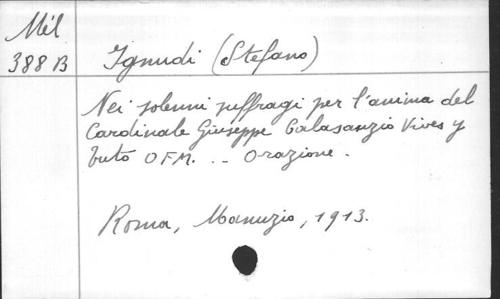 Mél
388 B
Ignudi (Stefano)
Nei solenni suffragi per l'anima del
Cardinale Giuseppe Calasanzio Vives y
Tuto OFM. .. Orazione.
Roma, Manuzio, 1913.